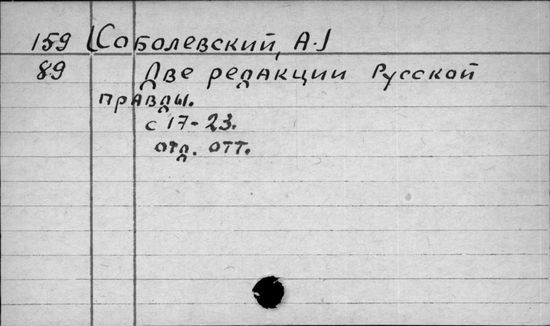 159 [Соболевский, А.]
89 Две редакции Русской
правды.
с 17-23.
отд. отт.